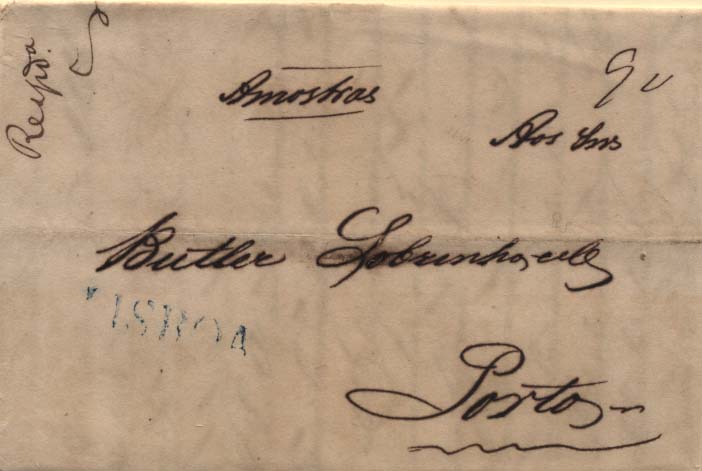 Respda
Amostras
90
Aos Snrs
Butler Sobrinho e Cª
LISBOA
Porto